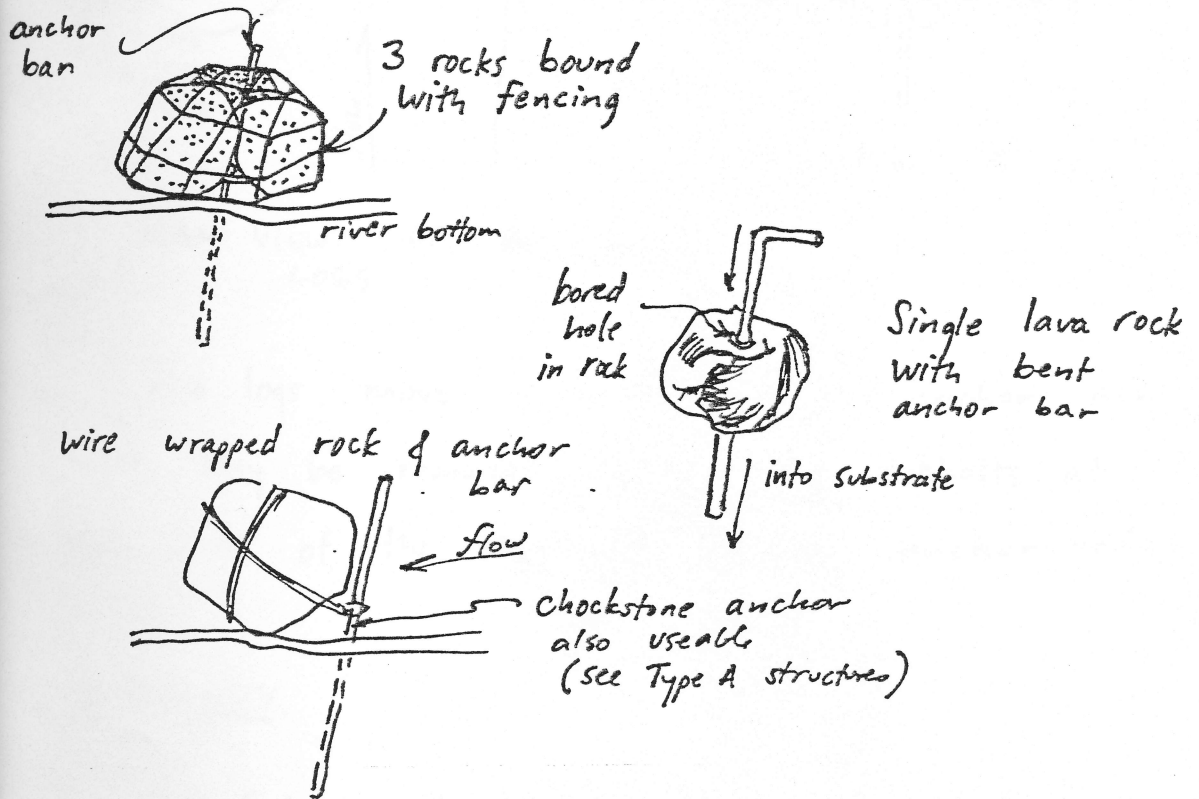 anchor
ban
3 rocks bound
with fencing
river bottom
bored
hole
in rock
Single lava rock
with bent
anchor bar
into substrate
wire wrapped rock & anchor
bar
flow
Chockstone anchor
also useable
(see Type A structures)